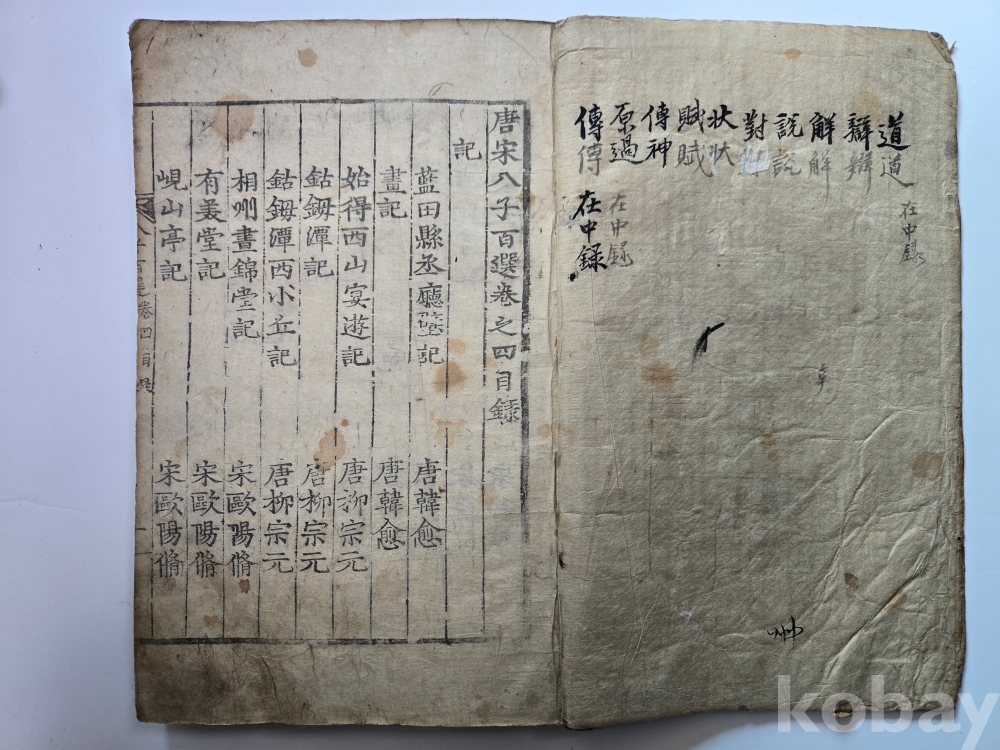 道道
在中録
辯辯
解解
說說
對對
狀狀
賦賦
傳神
原過
在中録
傳傳
在中録
唐宋八子百選卷之四目錄
記
藍田縣丞廳壁記 唐韓愈
畫記 唐韓愈
始得西山宴遊記 唐柳宗元
鈷鉧潭記 唐柳宗元
鈷鉧潭西小丘記 唐柳宗元
相州晝錦堂記 宋歐陽脩
有美堂記 宋歐陽脩
峴山亭記 宋歐陽脩
卷四目錄
kobay